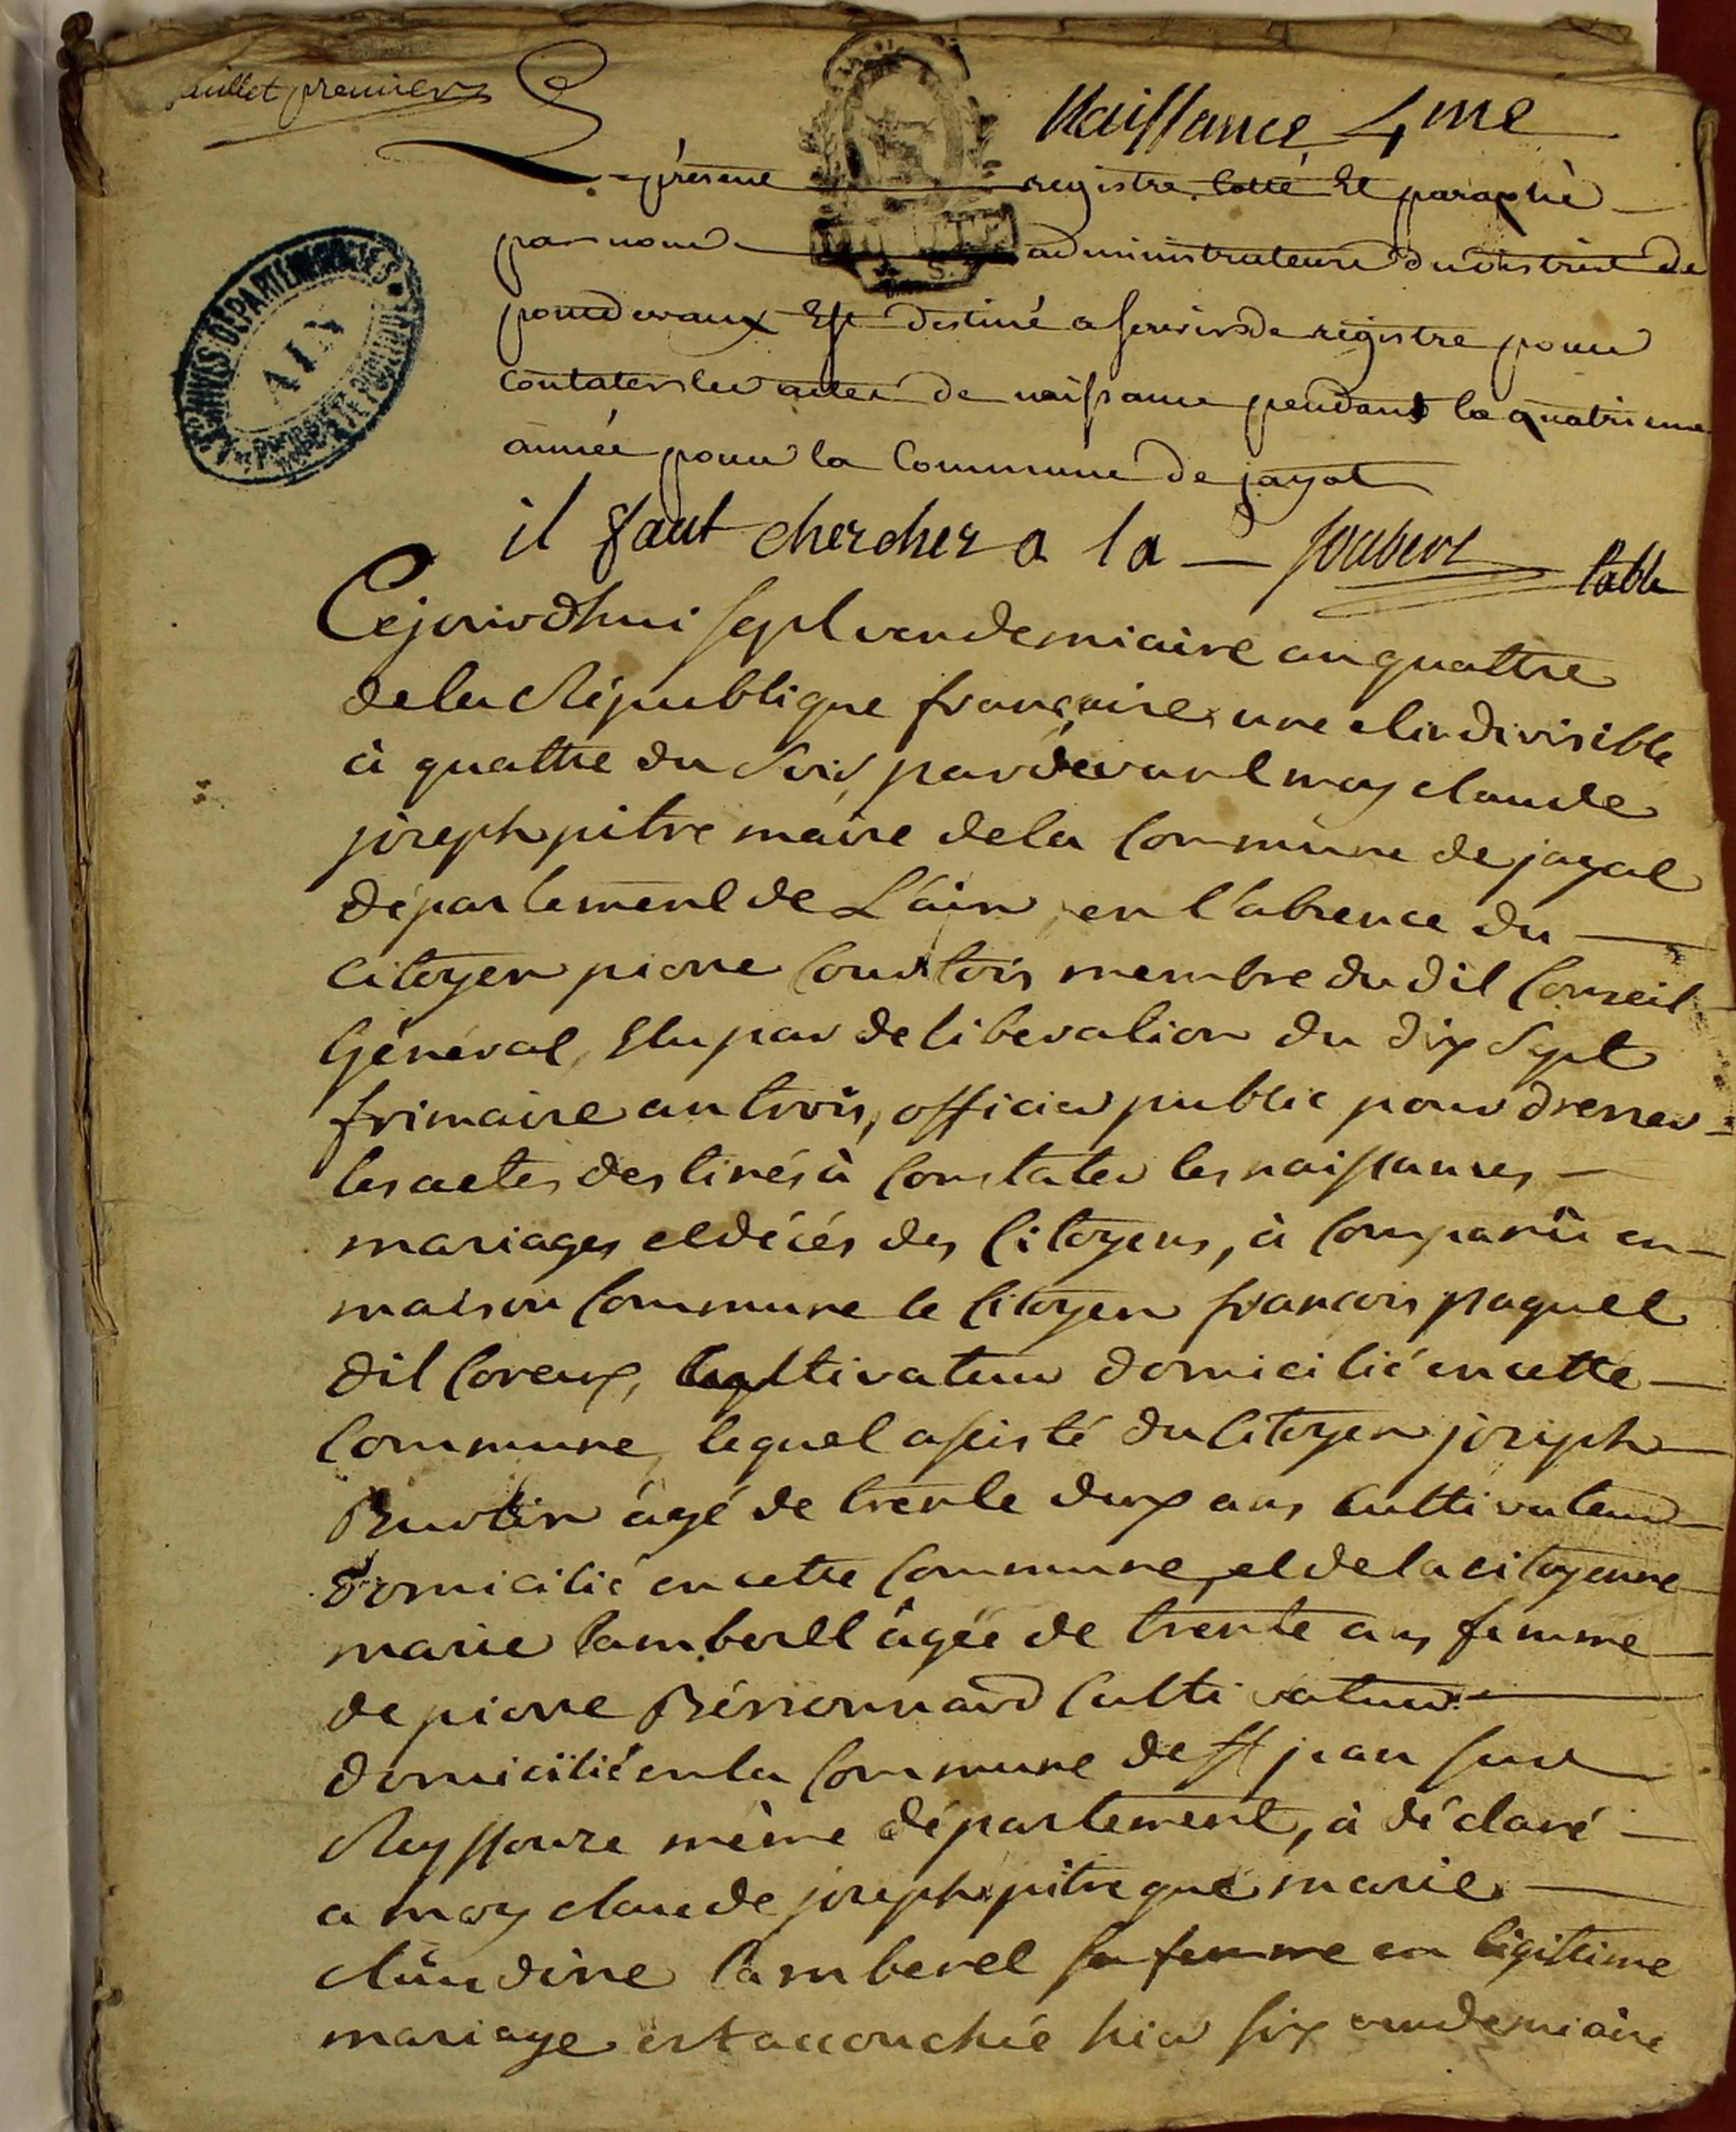 feuillet premier
Naissance 4me
Le présent registre cotté Et paraphé
par nous administrateur du district de
pontdevaux Est destiné a servir de registre pour
contater les actes de naissance pendant la quatrieme
année pour la Commune de jayat
il faut chercher a la table
Joubert
Cejourdhui sept vendemiaire an quattre
de la République françaire une et indivisible
à quattre du soir, pardevant moy claude
joseph pitre maire de la Commune de jayat
département de L'ain, en l'absence du
citoyen pierre Courtois membre du dit Conseil
Général, Elu par deliberation du dix sept
frimaire an trois, officier public pour dresser
les actes destinés à Constater les naissances
mariages et décés des Citoyens, à Comparû en
maison Commune le Citoyen francois paquet
dit Coreux, Cultivateur domicilié en cette
Commune, lequel assisté du Citoyen joseph
Burtin âgé de trente deux ans Cultivateur
domicilié en cette Commune, et de la citoyenne
marie Lamberet âgée de trente ans femme
de pierre Bérronnard Cultivateur
domicilié en la Commune de St jean sur
Reyssouze même département, à déclaré
a moy claude joseph pitre que marie
claudine Lamberet sa femme en légitime
mariage est accouchée hier six vendemiaire
ARCHIVES DÉPARTEMENTALES
AIN
PROPRIÉTÉ PUBLIQUE